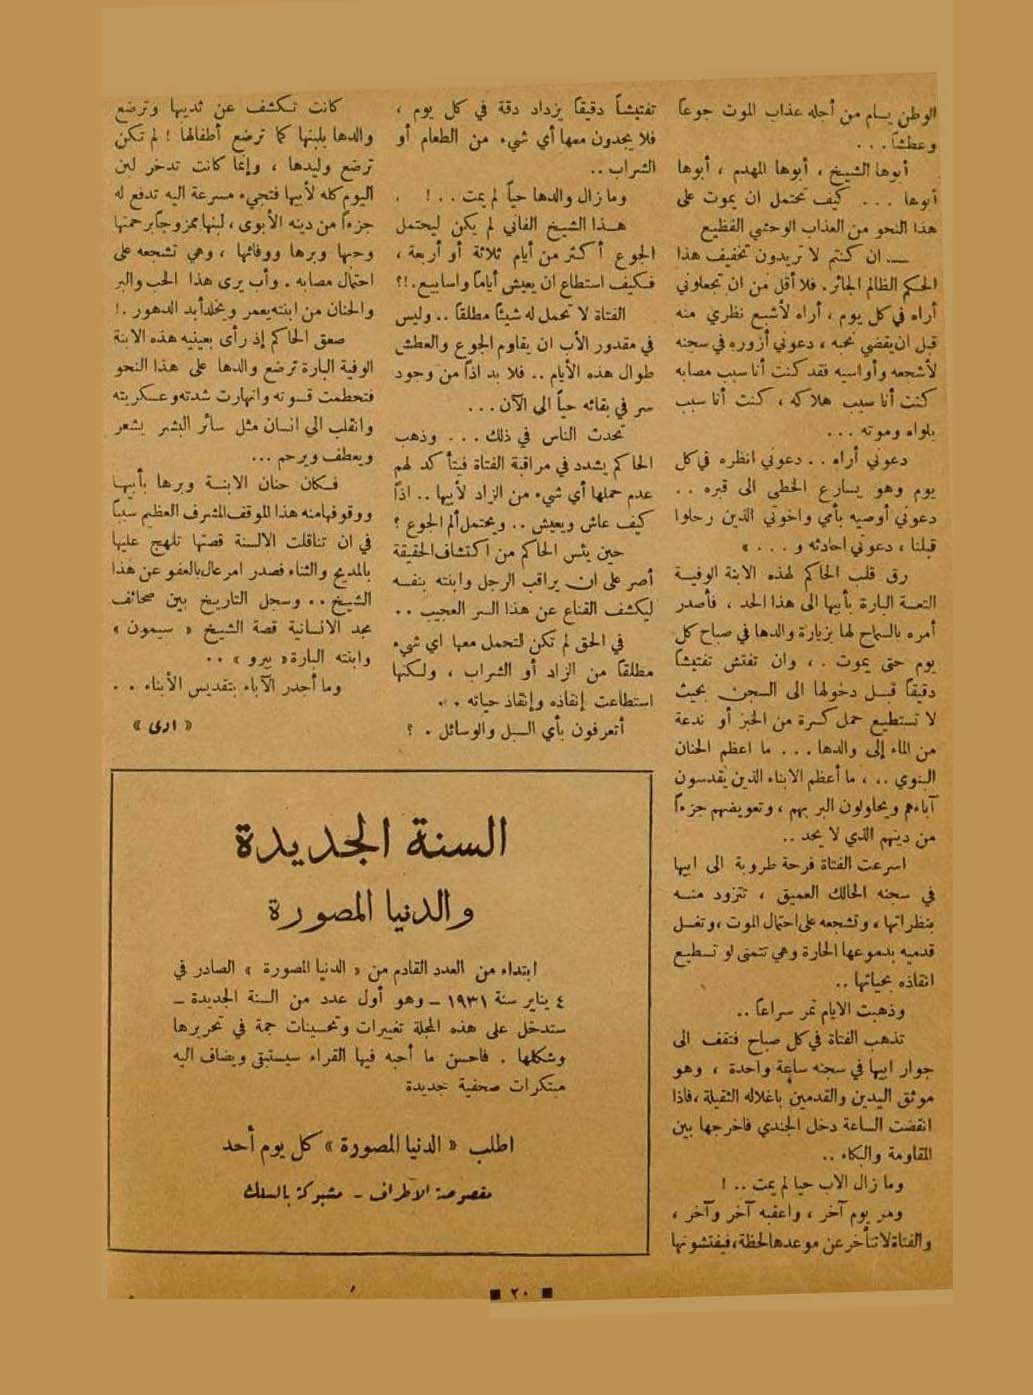 الوطن يسام من أجله عذاب الموت جوعاً
وعطشاً . . .
أبوها الشيخ ، أبوها المهدم ، أبوها
أبوها . . . كيف تحتمل ان يموت على
هذا النحو من العذاب الوحشي الفظيع
— ان كنتم لا تريدون تخفيف هذا
الحكم الظالم الجائر . فلا أقل من ان تجعلوني
أراه في كل يوم ، أراه لأشبع نظري منه
قبل ان يقضي نحبه ، دعوني أزوره في سجنه
لأشجعه وأواسيه فقد كنت أنا سبب مصابه
كنت أنا سبب هلاكه ، كنت أنا سبب
بلواه وموته . . .
دعوني أراه . . دعوني انظره في كل
يوم وهو يسارع الخطى الى قبره . .
دعوني أوصيه بأمي واخوتي الذين رحلوا
قبلنا ، دعوني احادثه و . . . »
رق قلب الحاكم لهذه الابنة الوفيـة
التعسة البارة بأبيها الى هذا الحد ، فأصدر
أمره بالسماح لها بزيارة والدها في صباح كل
يوم حتى يموت . ، وان تفتش تفتيشاً
دقيقاً قبـل دخولها الى السجن بحيث
لا تستطيع حمل كسرة من الخبز أو ندعة
من الماء إلى والدها . . . ما اعظم الحنان
البنوي . . ، ما أعظم الابناء الذين يقدسون
آباءهم ويحاولون البر بهم ، وتعويضهم جزءاً
من دينهم الذي لا يحد . .
اسرعت الفتاة فرحة طروبة الى ابيها
في سجنه الحالك العميق ، تتزود منـه
بنظراتها ، وتشجعه على احتمال الموت ، وتغسل
قدميه بدموعها الحارة وهي تتمنى لو تستطيع
انقاذه بحياتها . .
وذهبت الايام تمر سراعاً . .
تذهب الفتاة في كل صباح فتقف الى
جوار ابيها في سجنه ساعة واحدة ، وهو
موثق اليدين والقدمين باغلاله الثقيلة ، فاذا
انقضت الساعة دخل الجندي فاخرجها بين
المقاومة والبكاء . .
وما زال الاب حيا لم يمت . . !
ومر يوم آخر ، واعقبه آخر وآخر ،
والفتاة لا تتأخر عن موعدها لحظة ، فيفتشونها
تفتيشاً دقيقاً يزداد دقة في كل يوم ،
فلا يجدون معها أي شيء من الطعام أو
الشراب . .
وما زال والدها حياً لم يمت . . ! .
هـذا الشيخ الفاني لم يكن ليحتمل
الجوع أكثر من أيام ثلاثة أو أربعة ،
فكيف استطاع ان يعيش أياماً واسابيع . !؟
الفتاة لا تحمل له شيئاً مطلقاً . . وليس
في مقدور الأب ان يقاوم الجوع والعطش
طوال هذه الأيام . . فلا بد اذاً من وجود
سر في بقائه حياً الى الآن . . .
تحدث الناس في ذلك . . . وذهب
الحاكم يشدد في مراقبة الفتاة فيتأكد لهم
عدم حملها أي شيء من الزاد لأبيها . . اذاً
كيف عاش ويعيش . . ويحتمل ألم الجوع ؟
حين يئس الحاكم من اكتشاف الحقيقة
أصر على ان يراقب الرجل وابنته بنفسه
ليكشف القناع عن هذا السر العجيب . .
في الحق لم تكن لتحمل معها اي شيء
مطلقاً من الزاد أو الشراب ، ولكنها
استطاعت إنقاذه وإنقاذ حياته . . .
أتعرفون بأي السبل والوسائل . ؟
كانت تكشف عن ثدييها وترضع
والدها بلبنها كما ترضع أطفالها ! لم تكن
ترضع وليدها ، وإنما كانت تدخر لبن
اليوم كله لأبيها فتجيء مسرعة اليه تدفع له
جزءاً من دينه الأبوى ، لبنها ممزوجاً برحمتها
وحبها وبرها ووفائها ، وهي تشجعه على
احتمال مصابه . وأب يرى هذا الحب والبر
والحنان من ابنته يعمر ويخلد أبد الدهور . !
صعق الحاكم إذ رأى بعينيه هذه الابنة
الوفية البارة ترضع والدها على هذا النحو
فتحطمت قسوته وانهارت شدته وعسكريته
وانقلب الى انسان مثل سائر البشر يشعر
ويعطف ويرحم ...
فكان حنان الابنـة وبرها بأبيهـا
ووقوفها منه هذا الموقف المشرف العظيم سبباً
في ان تناقلت الالسنة قصتها تلهج عليها
بالمديح والثناء فصدر امر عال بالعفو عن هذا
الشيخ . . وسجل التاريخ بين صحائف
مجد الانسانية قصة الشيخ « سيمون »
وابنته البارة « بيرو » . .
وما أجدر الآباء بتقديس الأبناء . .
« ارى »
السنة الجديدة
والدنيا المصورة
ابتداء من العدد القادم من « الدنيا المصورة » الصادر في
٤ يناير سنة ١٩٣١ – وهو أول عدد من السنة الجديدة –
ستدخل على هذه المجلة تغييرات وتحسينات جمة في تحريرها
وشكلها . فاحسن ما أحبه فيها القراء سيستبقى ويضاف اليه
مبتكرات صحفية جديدة
اطلب « الدنيا المصورة » كل يوم أحد
مقصوصة الاطراف – مشبوكة بالسلك
■ ٢٠ ■